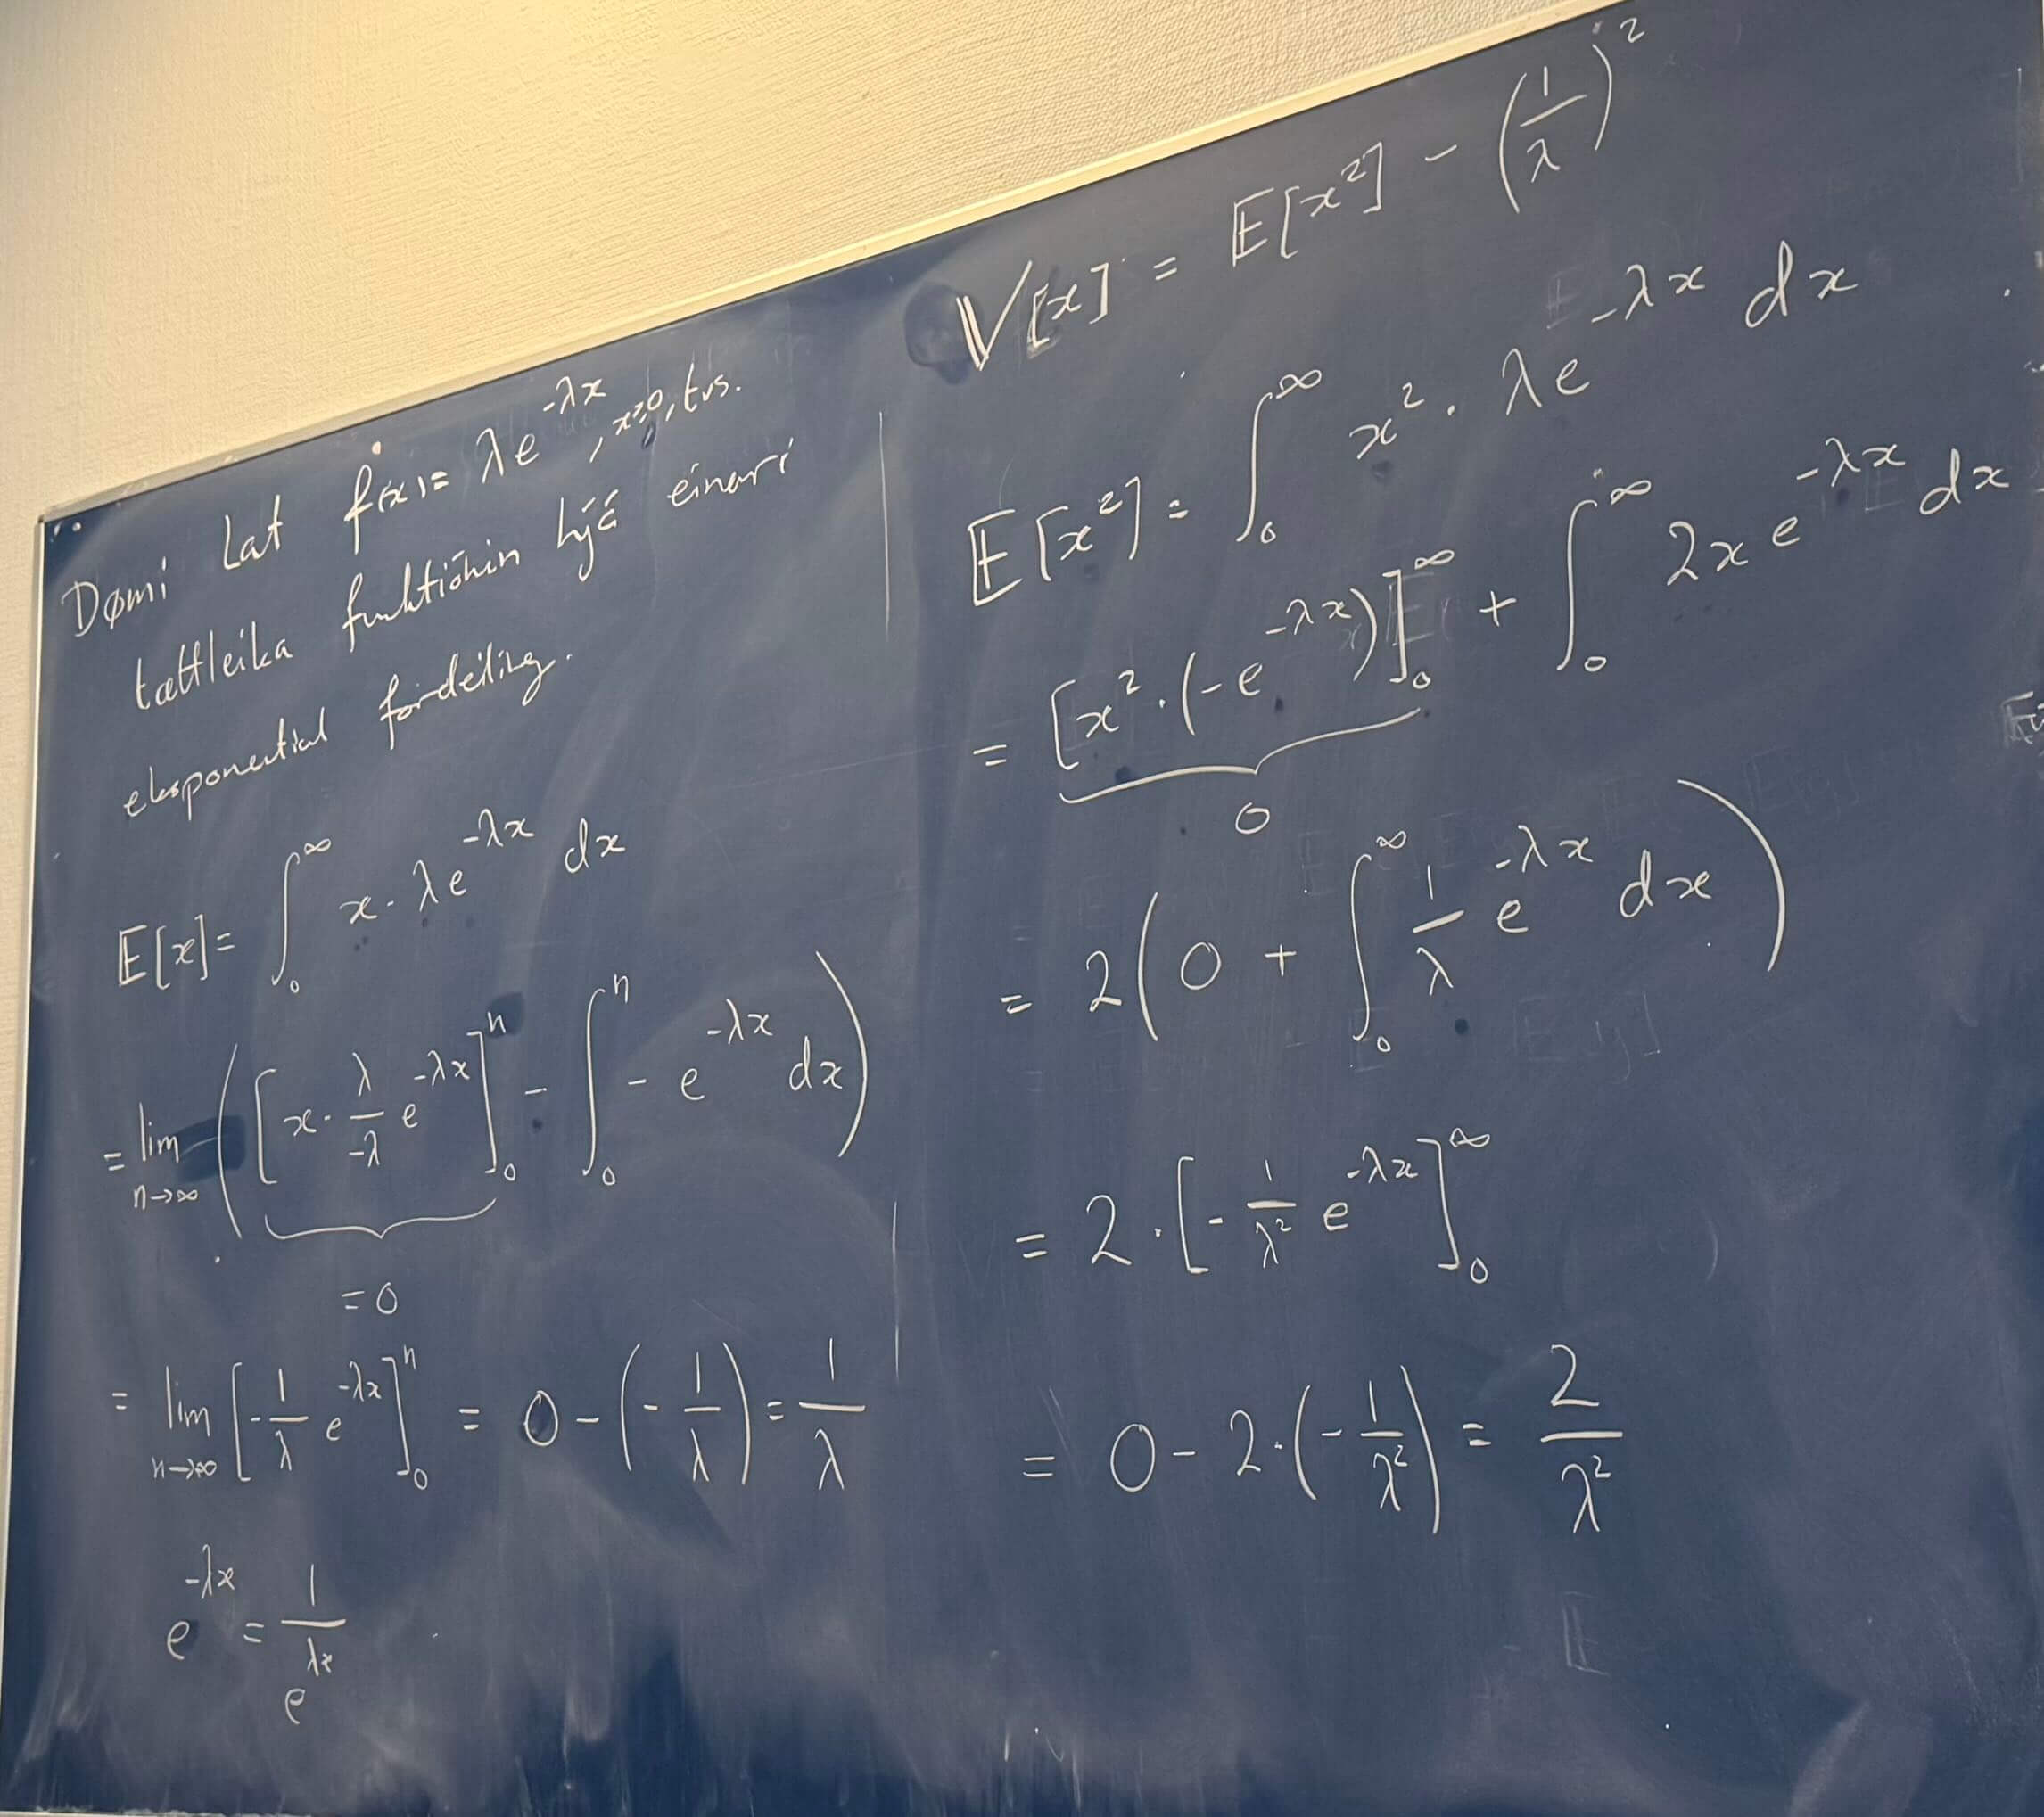 Dømi Lat f(x) = λe^{-λx}, x≥0, tvs.
tættleika funktiónin hjá einari
eksponential fordeiling.
𝔼[x] = ∫_0^∞ x · λe^{-λx} dx
= lim_{n→∞} ( [x · λ/-λ e^{-λx}]_0^n - ∫_0^n - e^{-λx} dx )
= 0
= lim_{n→∞} [-1/λ e^{-λx}]_0^n = 0 - (-1/λ) = 1/λ
e^{-λx} = 1/e^{λx}
𝕍[x] = 𝔼[x²] - (1/λ)²
𝔼[x²] = ∫_0^∞ x² · λe^{-λx} dx
= [x² · (-e^{-λx})]_0^∞ + ∫_0^∞ 2x e^{-λx} dx
0
= 2(0 + ∫_0^∞ 1/λ e^{-λx} dx)
= 2 · [-1/λ² e^{-λx}]_0^∞
= 0 - 2 · (-1/λ²) = 2/λ²